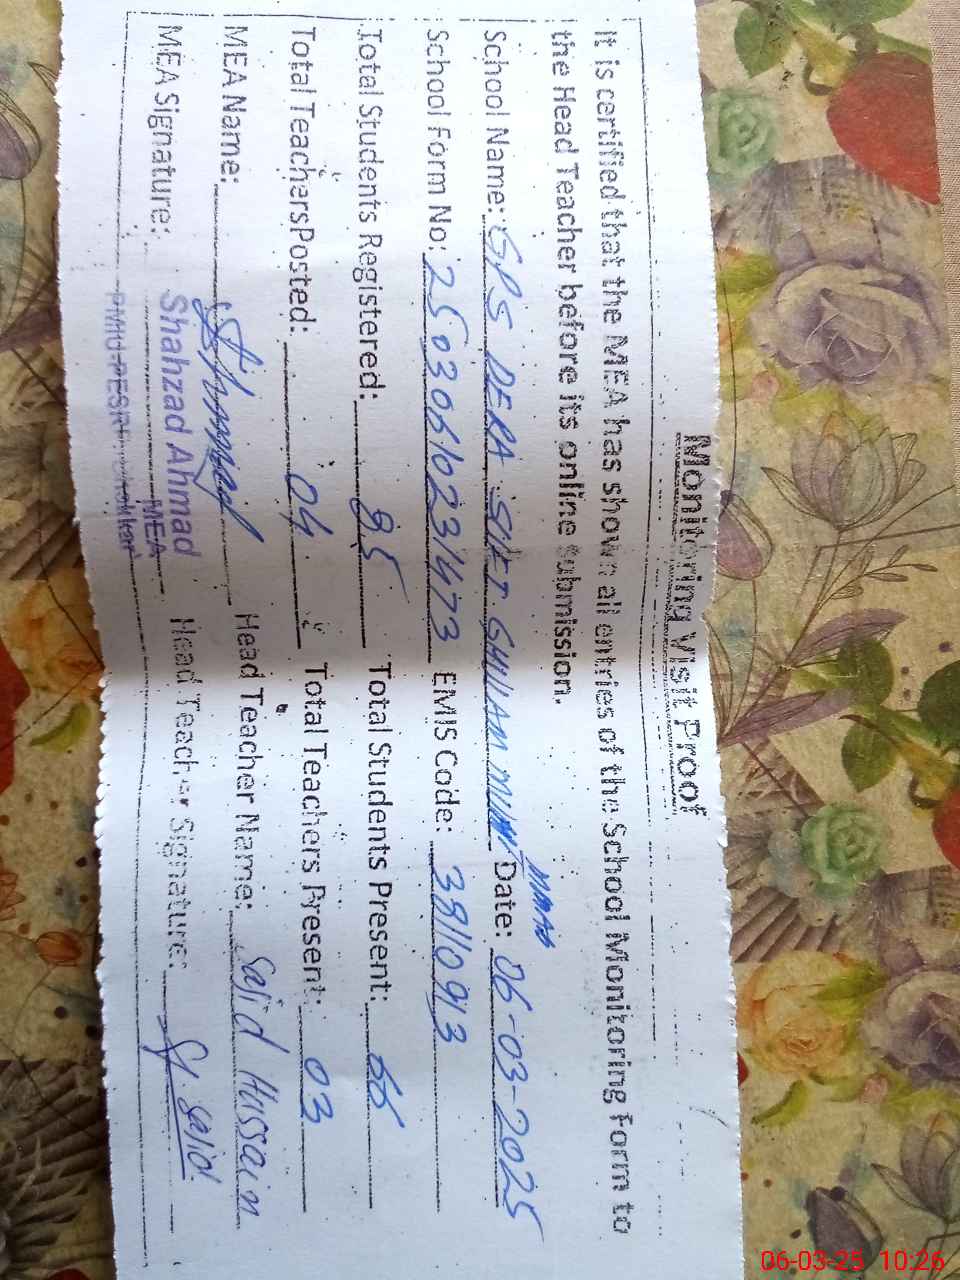 Monitoring Visit Proof
It is certified that the MEA has shown all entries of the School Monitoring Form to
the Head Teacher before its online submission.
School Name: GPS DERA SIET GHULAM MUHAMMAD Date: 06-03-2025
School Form No: 25030610231473 EMIS Code: 38110913
Total Students Registered: 85 Total Students Present: 66
Total Teachers Posted: 04 Total Teachers Present: 03
MEA Name: Head Teacher Name: Sajid Hussain
MEA Signature: Shahzad Ahmad Head Teacher Signature: Sajid
MEA
06-03-25 10:26